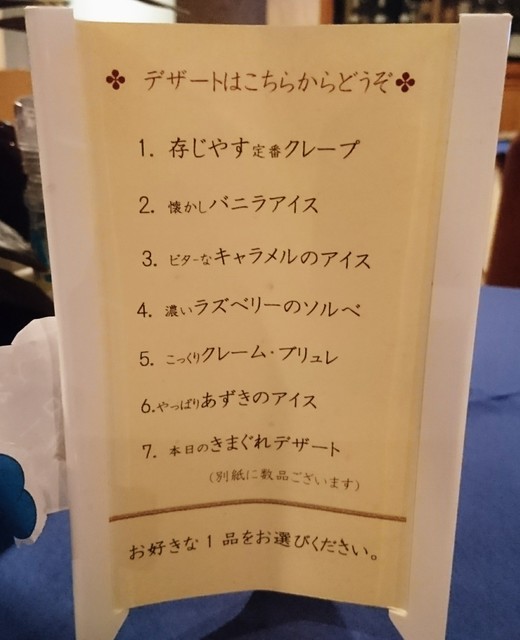 デザートはこちらからどうぞ
1. 存じやす定番クレープ
2. 懐かしバニラアイス
3. ビターなキャラメルのアイス
4. 濃いラズベリーのソルベ
5. こっくりクレーム・ブリュレ
6.やっぱりあずきのアイス
7. 本日のきまぐれデザート
(別紙に数品ございます)
お好きな1品をお選びください。